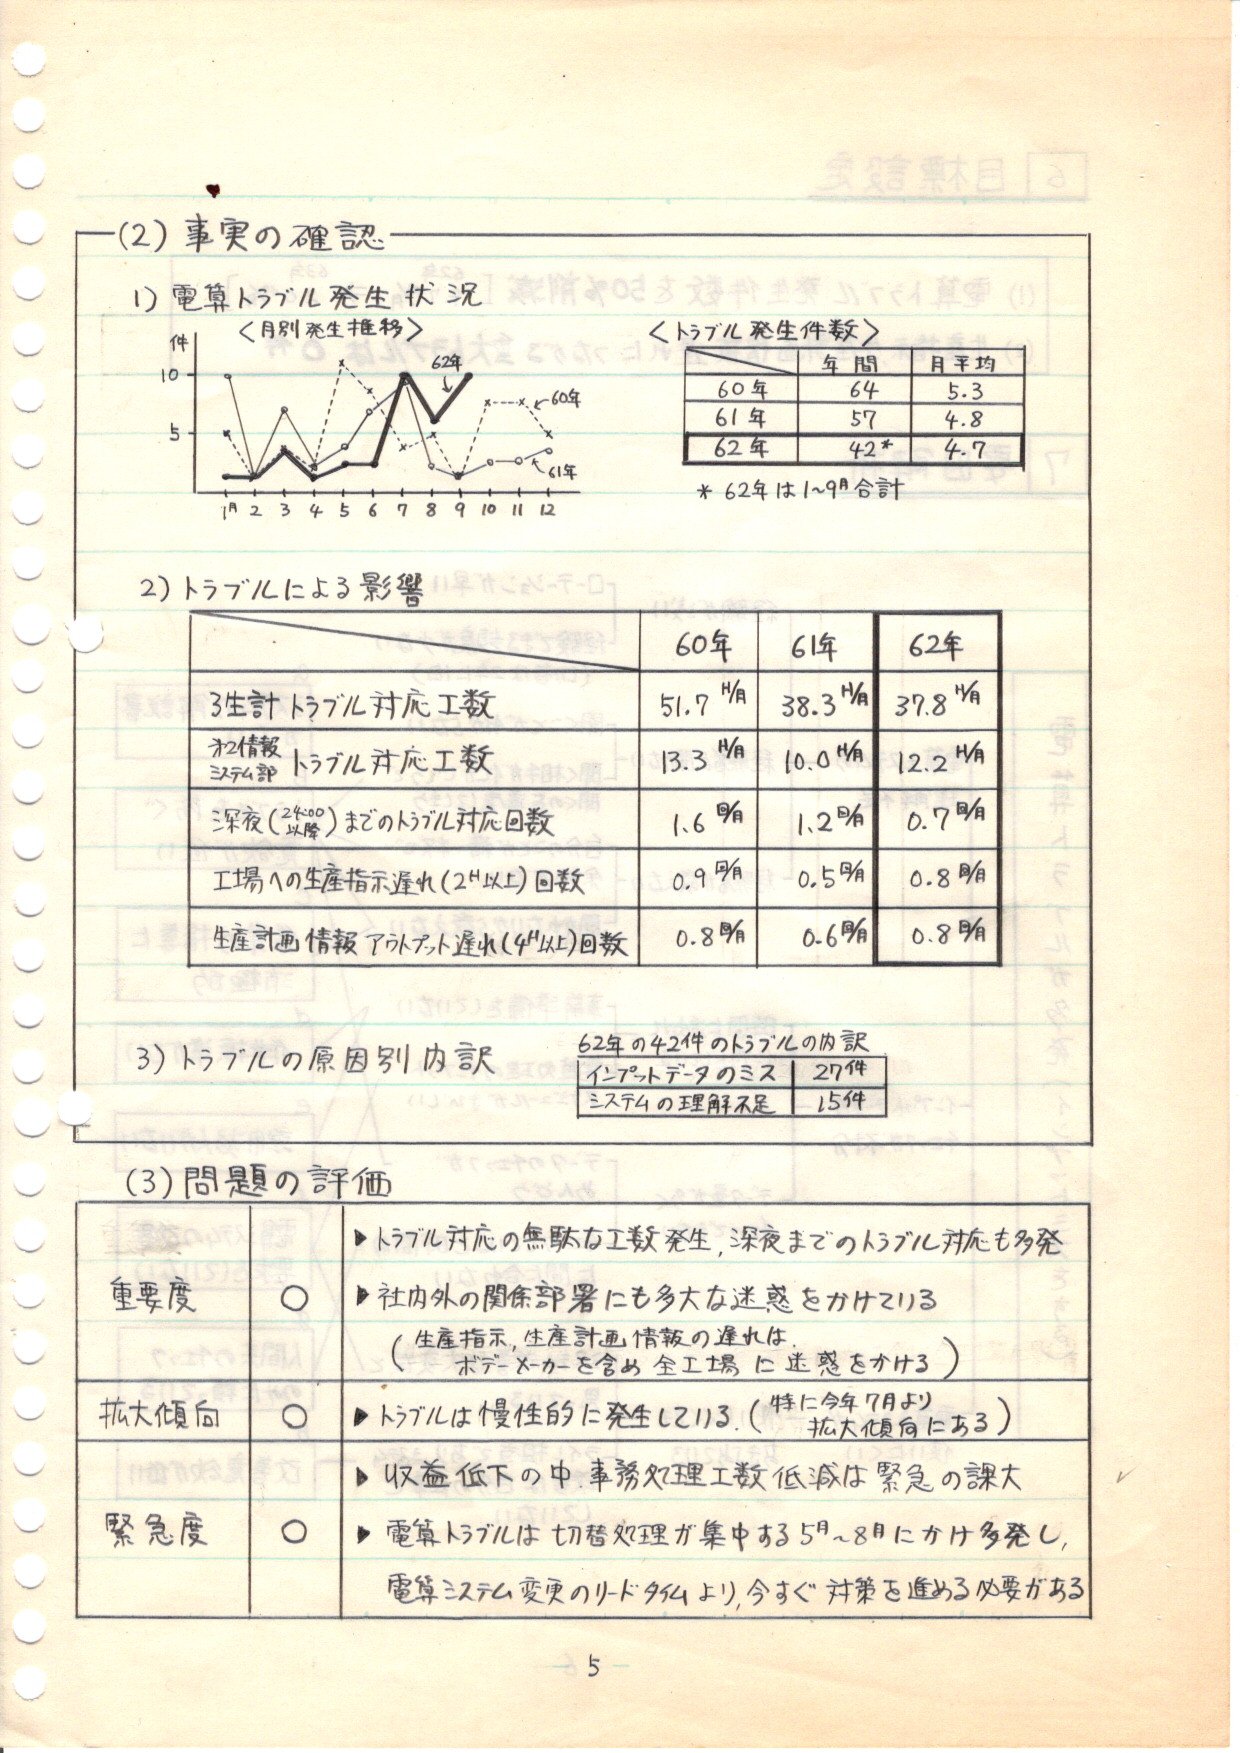 (2) 事実の確認
1) 電算トラブル発生状況
<月別発生推移>
件
10
5
62年
60年
61年
1月 2 3 4 5 6 7 8 9 10 11 12
<トラブル発生件数>
年間 月平均
60年 64 5.3
61年 57 4.8
62年 42* 4.7
* 62年は1~9月合計
2) トラブルによる影響
60年 61年 62年
3生計トラブル対応工数 51.7 H/月 38.3 H/月 37.8 H/月
オ2情報システム部 トラブル対応工数 13.3 H/月 10.0 H/月 12.2 H/月
深夜(24:00以降)までのトラブル対応回数 1.6 回/月 1.2 回/月 0.7 回/月
工場への生産指示遅れ(2H以上)回数 0.9 回/月 0.5 回/月 0.8 回/月
生産計画情報アウトプット遅れ(4H以上)回数 0.8 回/月 0.6 回/月 0.8 回/月
3) トラブルの原因別内訳
62年の42件のトラブルの内訳
インプットデータのミス 27件
システムの理解不足 15件
(3) 問題の評価
重要度 ○
▶トラブル対応の無駄な工数発生,深夜までのトラブル対応も多発
▶社内外の関係部署にも多大な迷惑をかけている
(生産指示,生産計画情報の遅れは,
ボデーメーカーを含め全工場に迷惑をかける)
拡大傾向 ○
▶トラブルは慢性的に発生している.(特に今年7月より
拡大傾向にある)
緊急度 ○
▶収益低下の中,事務処理工数低減は緊急の課大
▶電算トラブルは切替処理が集中する5月~8月にかけ多発し,
電算システム変更のリードタイムより,今すぐ対策を進める必要がある
5